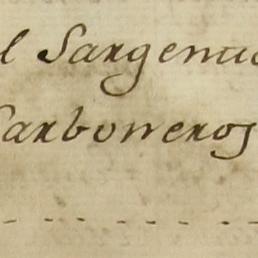 l Sargento
Carboneros